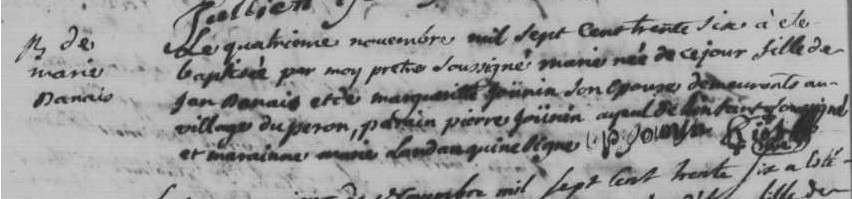 B de
marie
Danais
Le quatrieme novembre mil sept cens trente six à ete
baptisée par moy pretre soussigné marie née de ce jour fille de
Jan Danais et de margueritte Joünin son epouse demeurants au
village du peron, parain pierre Joünin ayeul de l'enfant soussigné
et maraine marie Landau qui ne signe P. Jounin
novembre mil sept cent trente six a esté
fille de